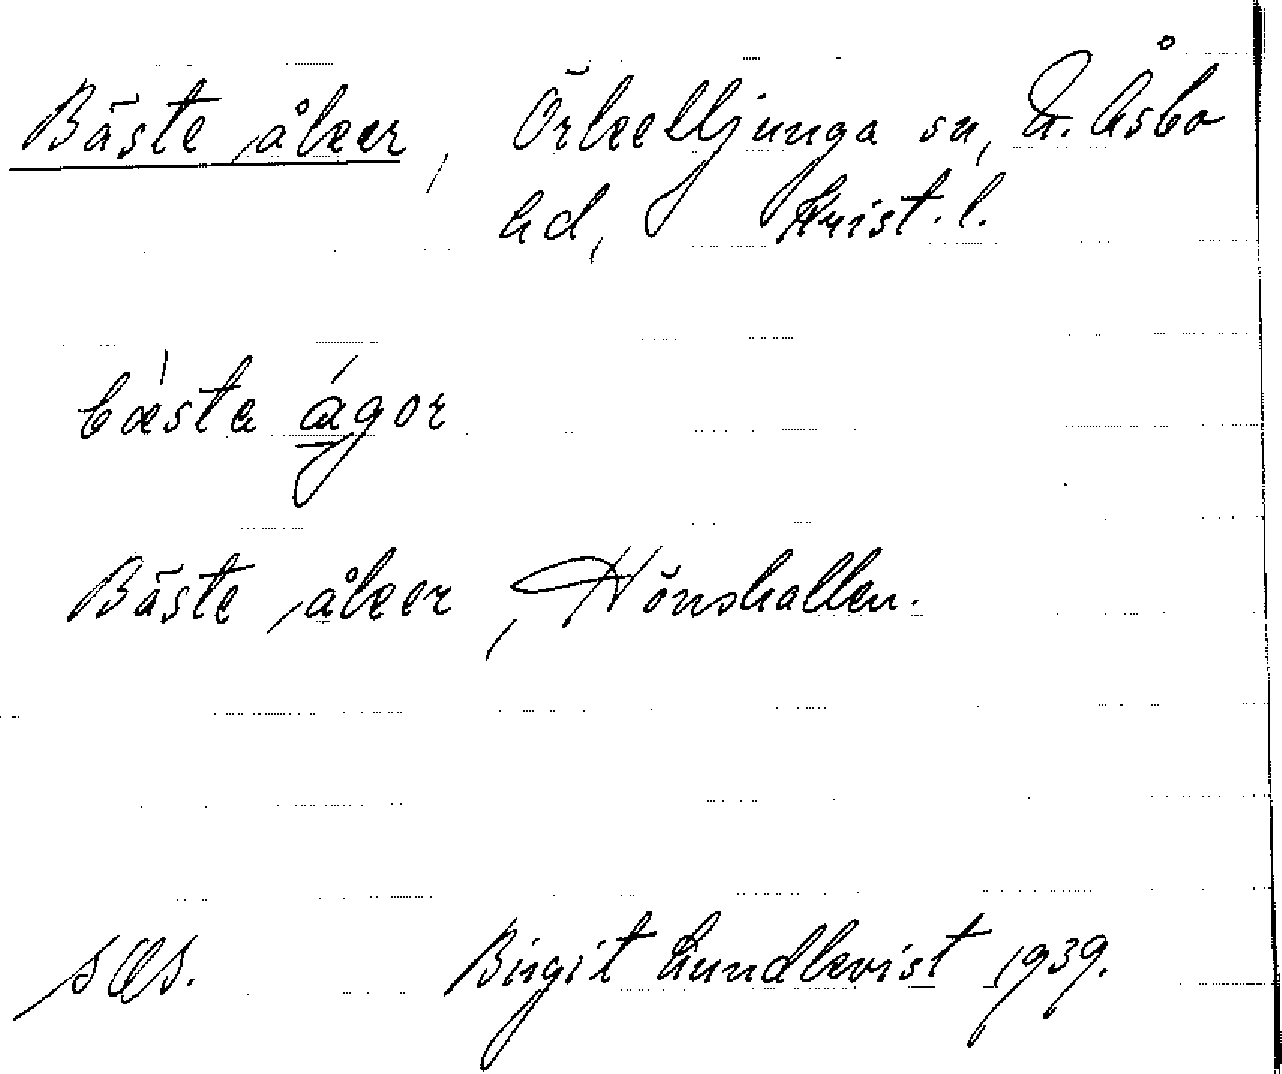 Bäste åker, Örkelljunga sn, N. Åsbo
hd, Krist. l.
bästa ågor
Bäste åker, Hönshallen.
säs.
Birgit Lundkvist 1939.